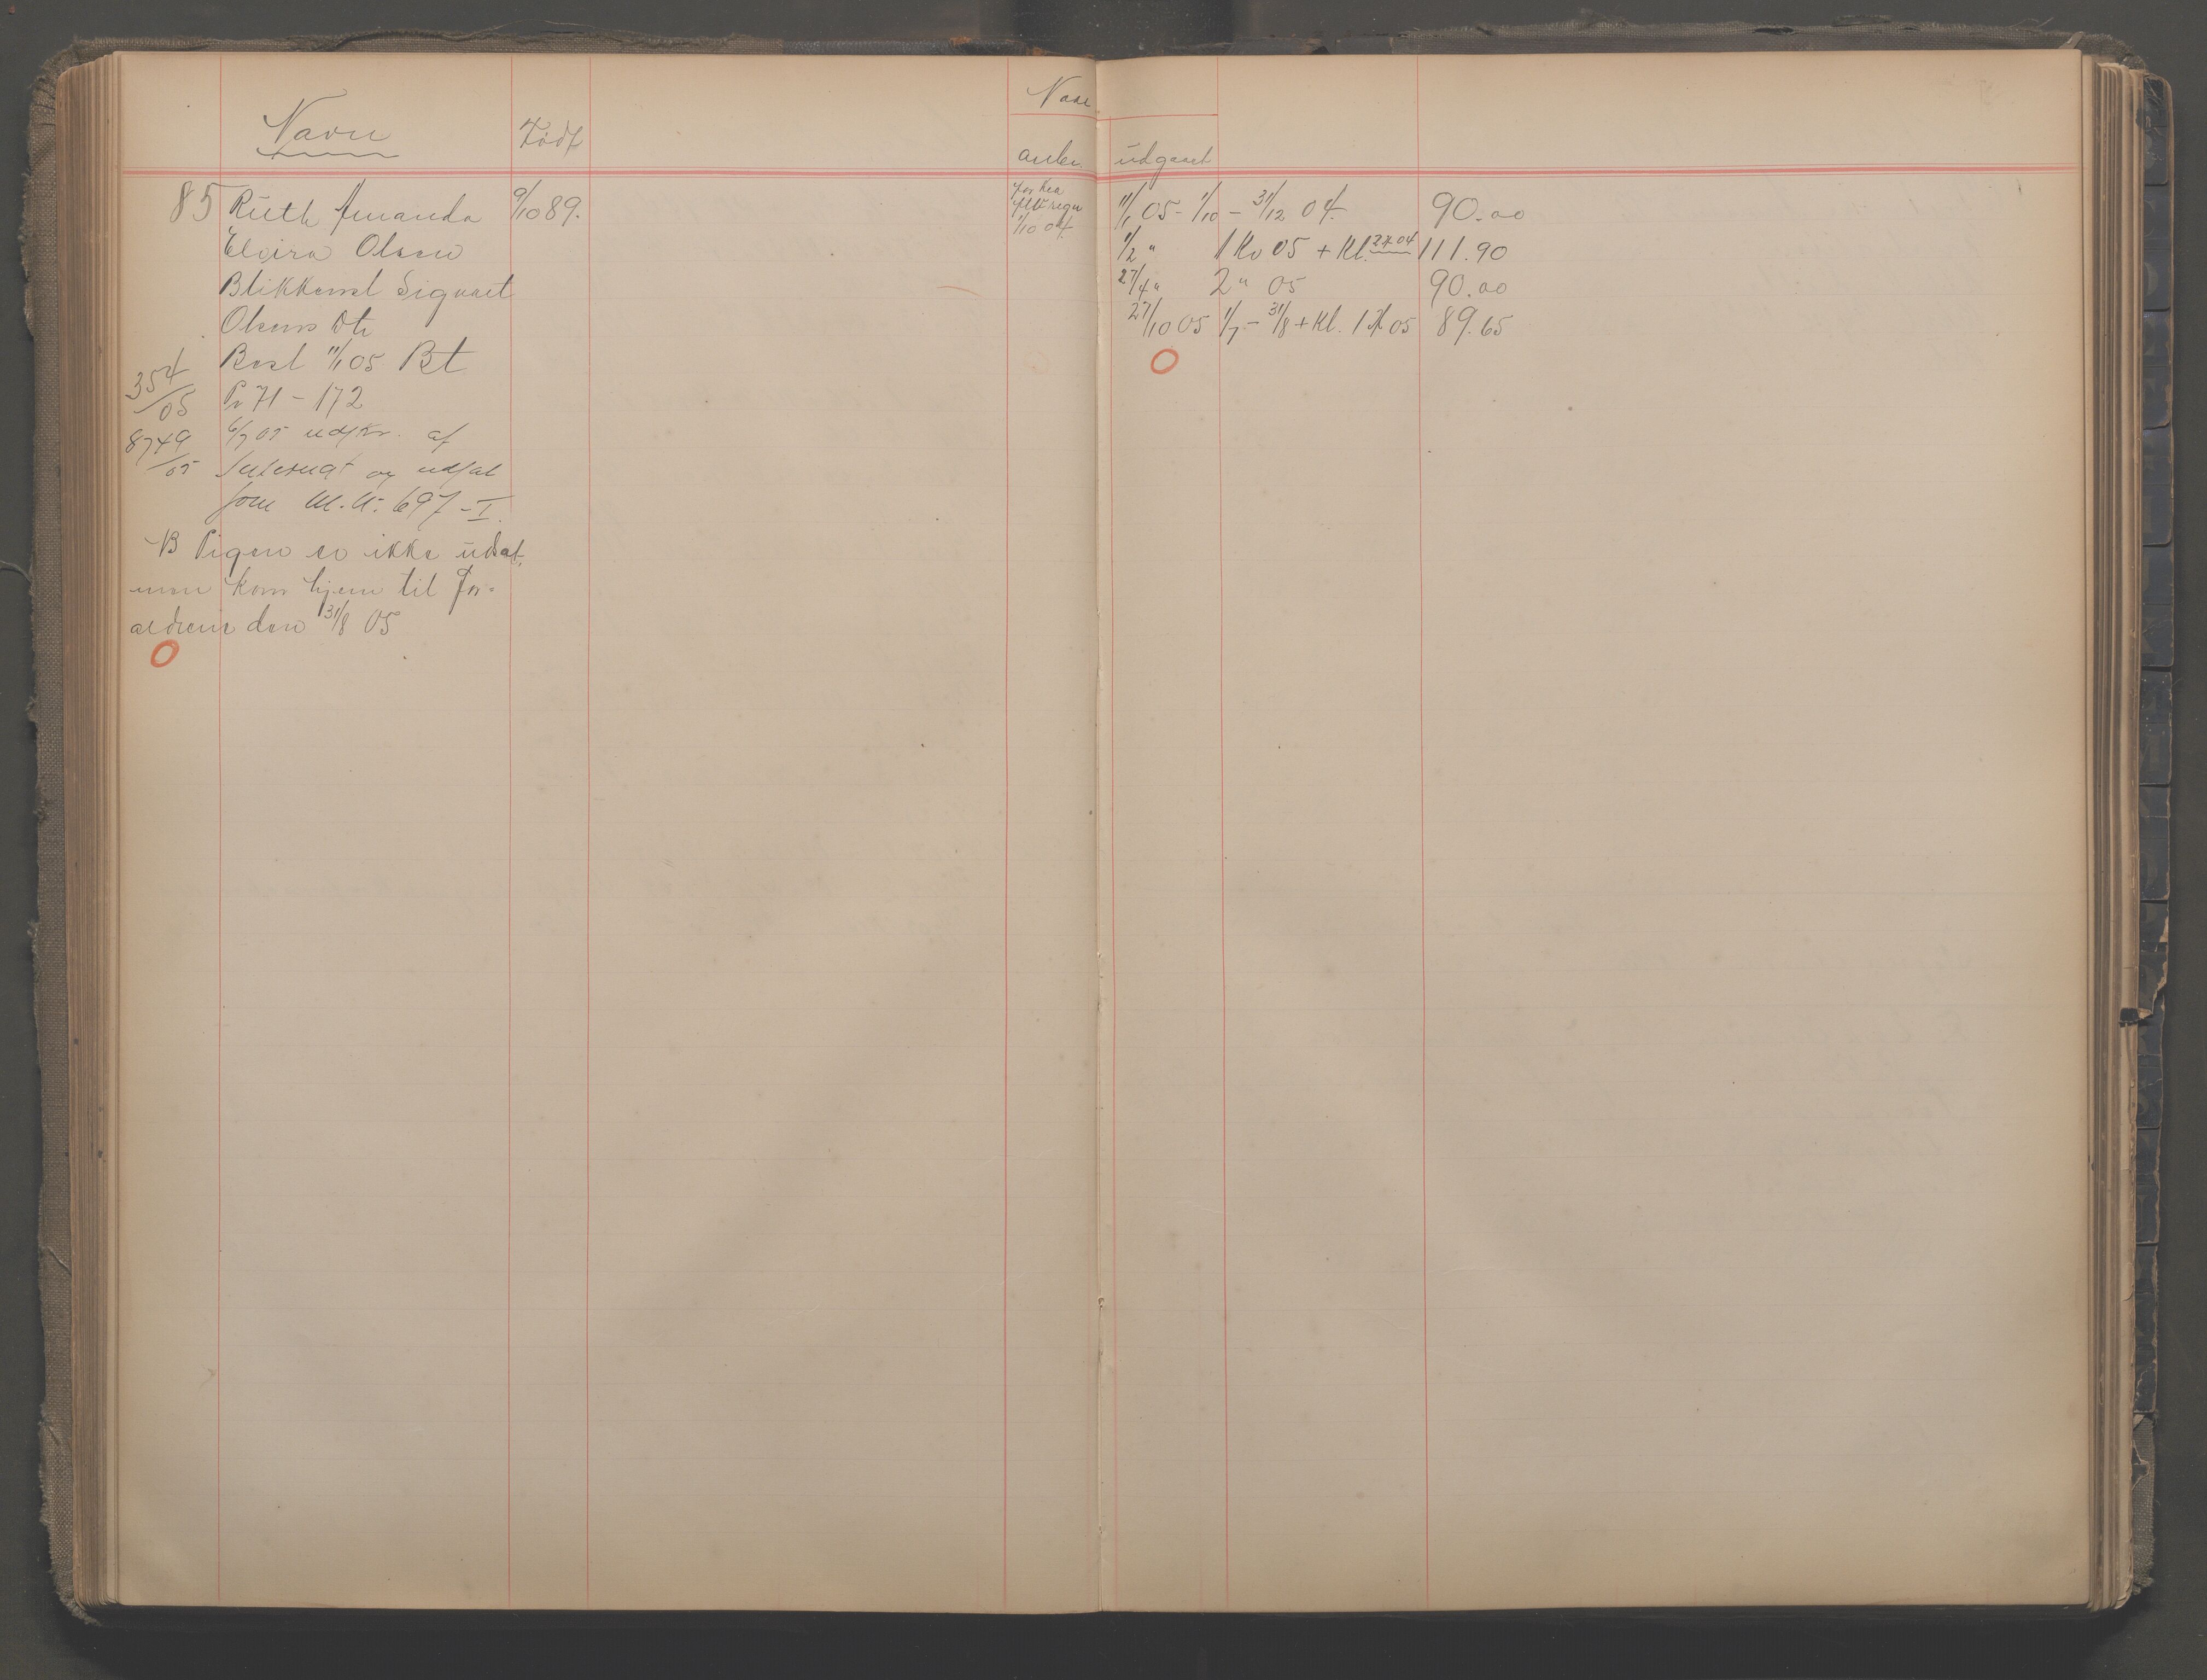 Navn
Født
Naar
anbr. udgaaet
85 Ruth Amanda 9/10 89.
Elvira Olsen
Blikkensl Sigvart
Olsens Dtr
Besl 11/1 05 Bt
354/05 Pr 71 - 172
8749/05 6/7 05 udskr. af
Internat og udsat
som M. U. 697 - I.
NB Pigen er ikke udsat,
men kom hjem til For-
ældrene den 31/8 05
O
1/10 04
11/1 05 - 1/10 - 31/12 04. 90.00
1/2 " 1 Kv 05 + Kl. 2 H 04 111.90
27/4 " 2 " 05 90.00
27/10 05 1/7 - 31/8 + Kl. 1 H 05 89.65
O